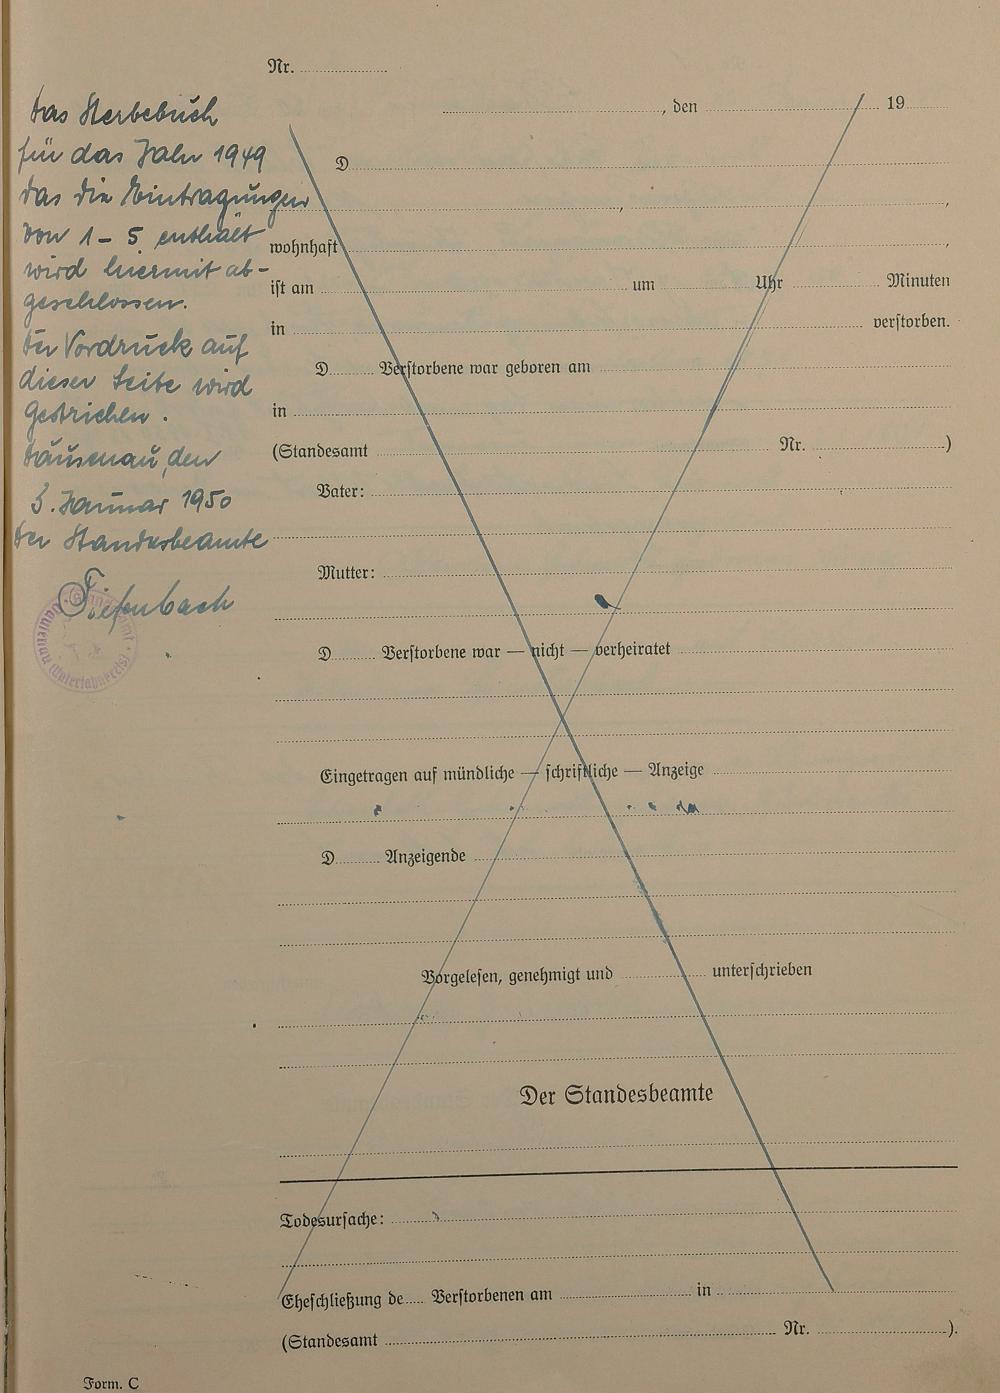 Nr.
, den 19
Das Sterbebuch
für das Jahr 1949
das die Eintragungen
von 1 - 5 enthält
wird hiermit ab-
geschlossen.
Der Vordruck auf
dieser Seite wird
gestrichen.
Dausenau, den
3. Januar 1950
Der Standesbeamte
Tiefenbach
Standesamt
Dausenau (Unterlahnkreis)
D
,
,
wohnhaft ,
ist am um Uhr Minuten
in verstorben.
D Verstorbene war geboren am
in
(Standesamt Nr. )
Vater:
Mutter:
D Verstorbene war — nicht — verheiratet
Eingetragen auf mündliche — schriftliche — Anzeige
D Anzeigende
Vorgelesen, genehmigt und unterschrieben
Der Standesbeamte
Todesursache:
Eheschließung de Verstorbenen am in
(Standesamt Nr. ).
Form. C